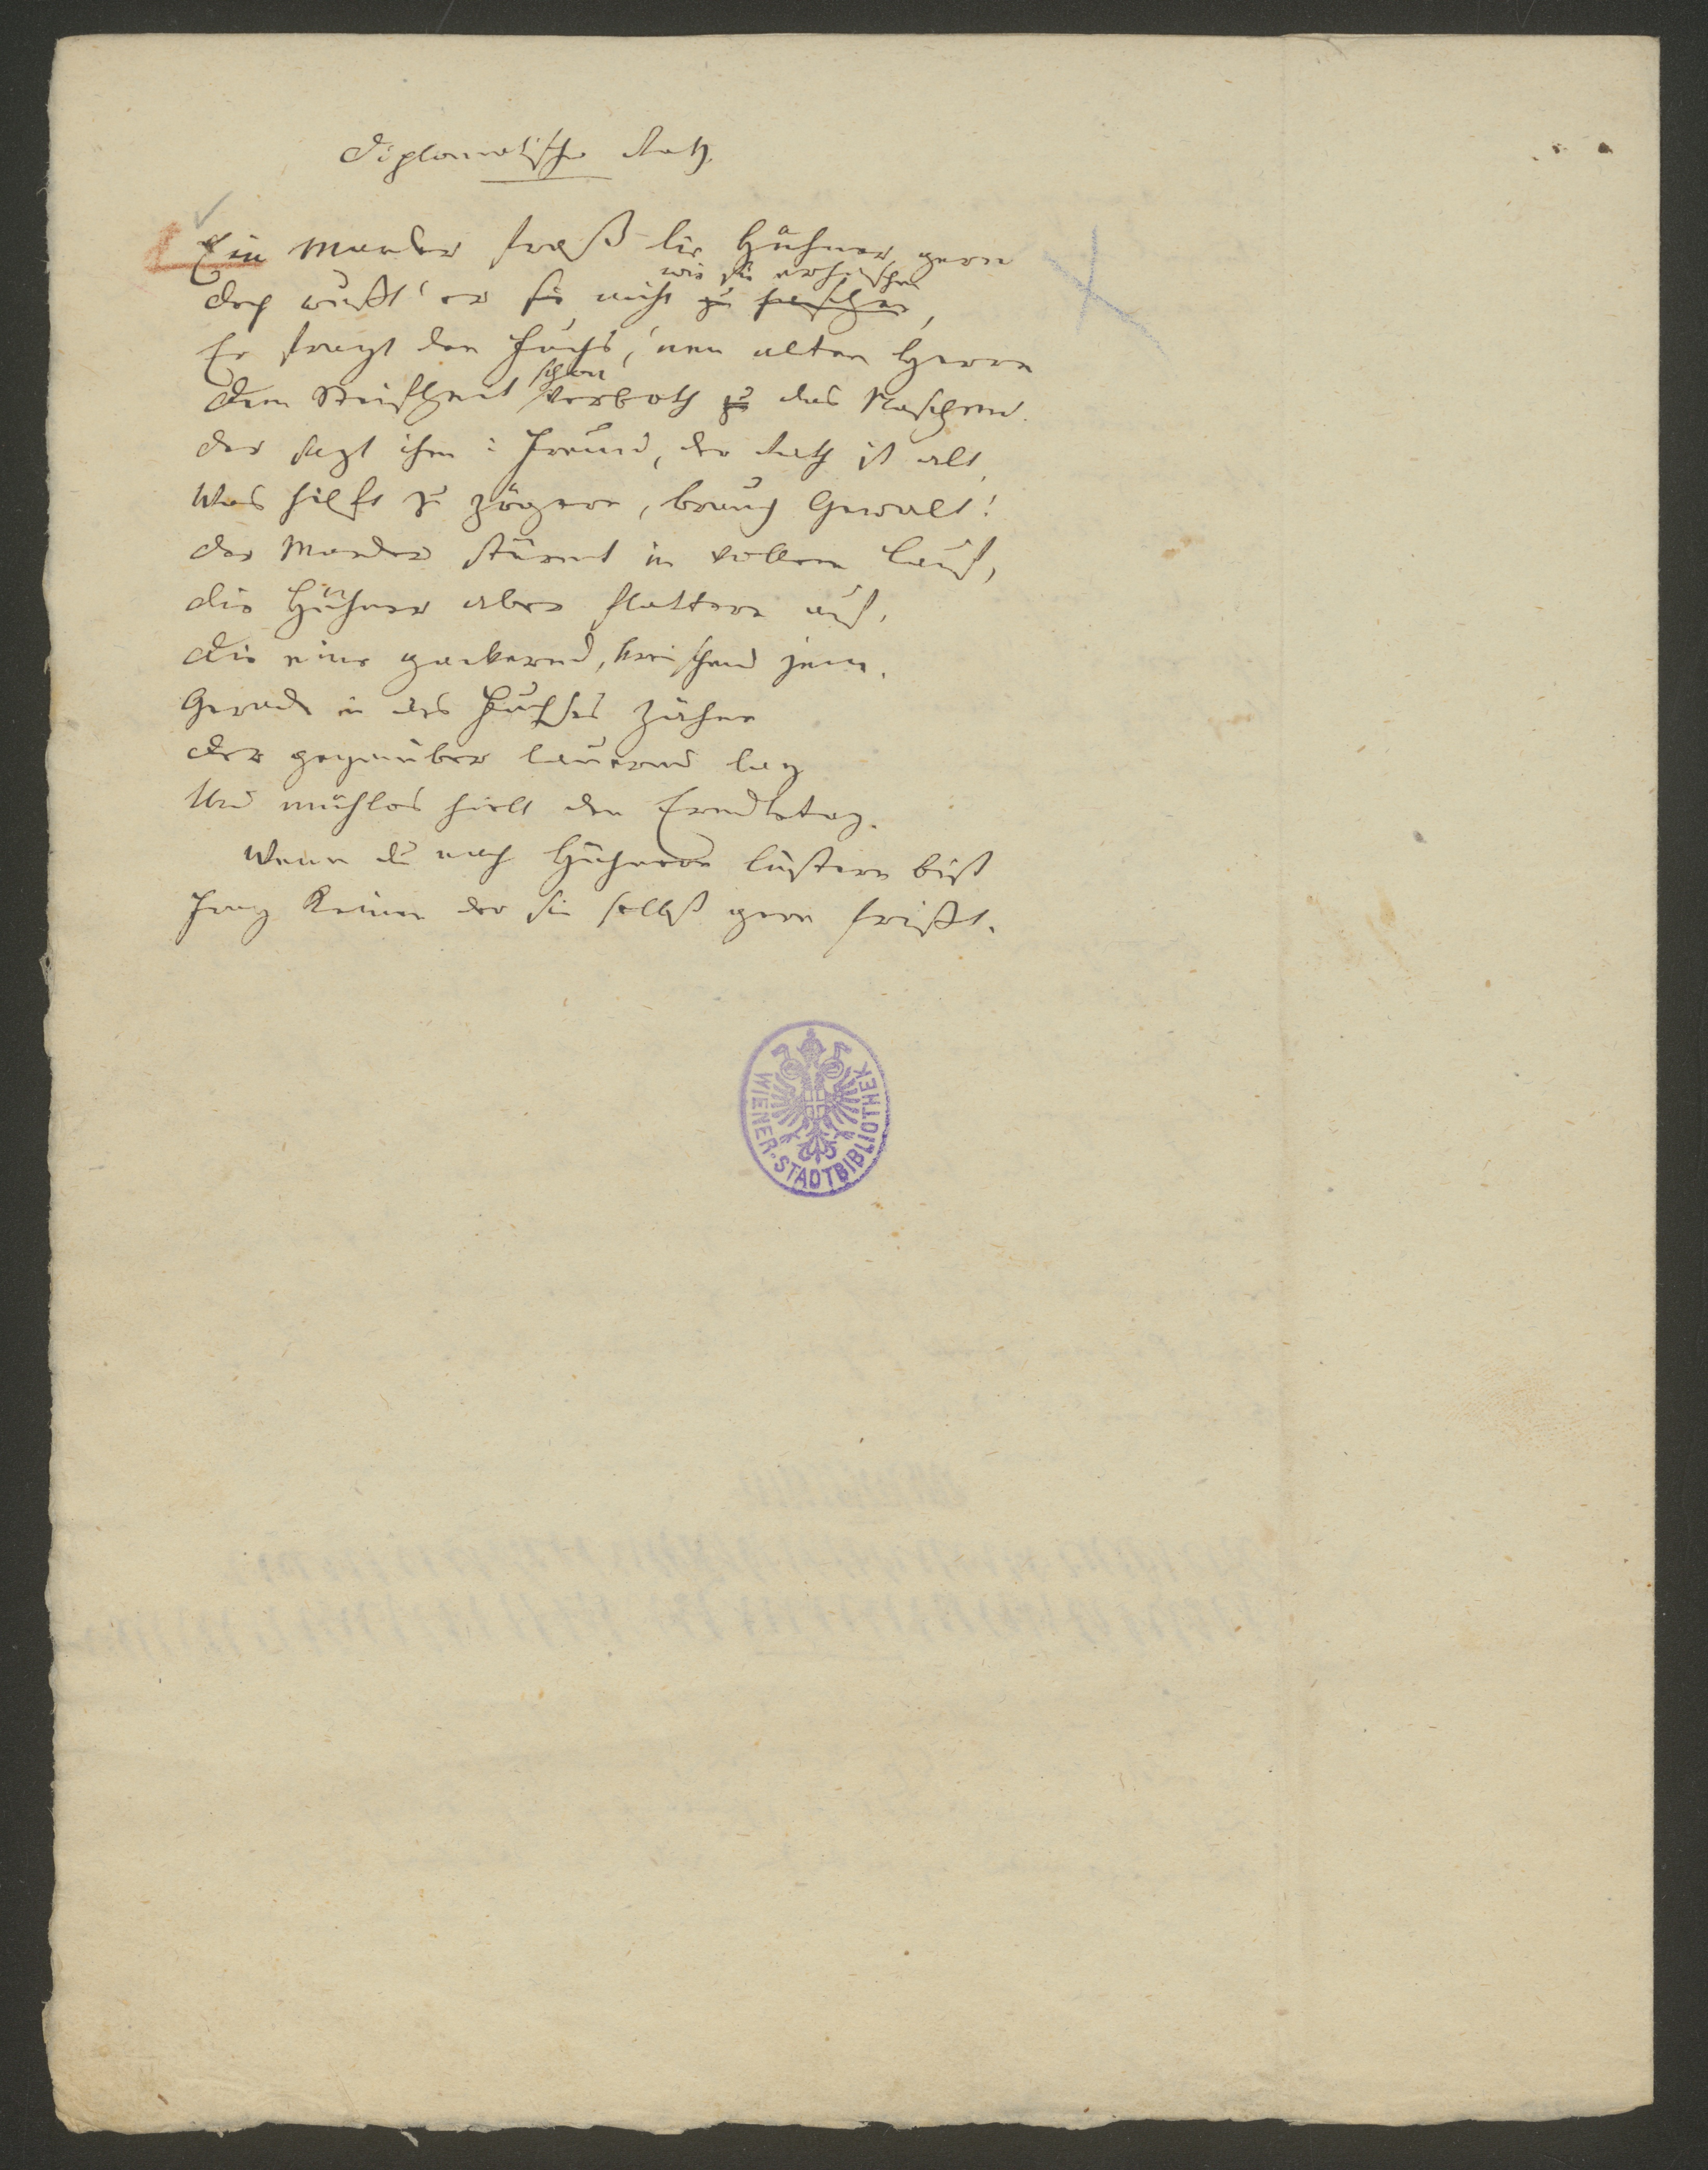 Diplomatischer Rath.
Ein Marder fraß die Hühner gern
wie sie erhaschen
Doch wußt' er sie nicht zu haschen,
Er fragt den Fuchs, 'nen alten Herrn
schon
Dem Steifheit verboth zu das Naschen.
Der sagt ihm: Freund, der Rath ist alt,
Was hilft zu zögern, brauch Gewalt!
Der Marder stürmt in vollem Lauf,
Die Hühner aber flattern auf,
Die eine gackernd, kreischend jene.
Gerade in des Fuchses Zähne
Der gegenüber lauernd lag
Und mühlos hielt den Erndtetag.
Wenn du nach Hühnern lüstern bist
Frag Keinen der sie selbst gern frißt.
WIENER-STADTBIBLIOTHEK